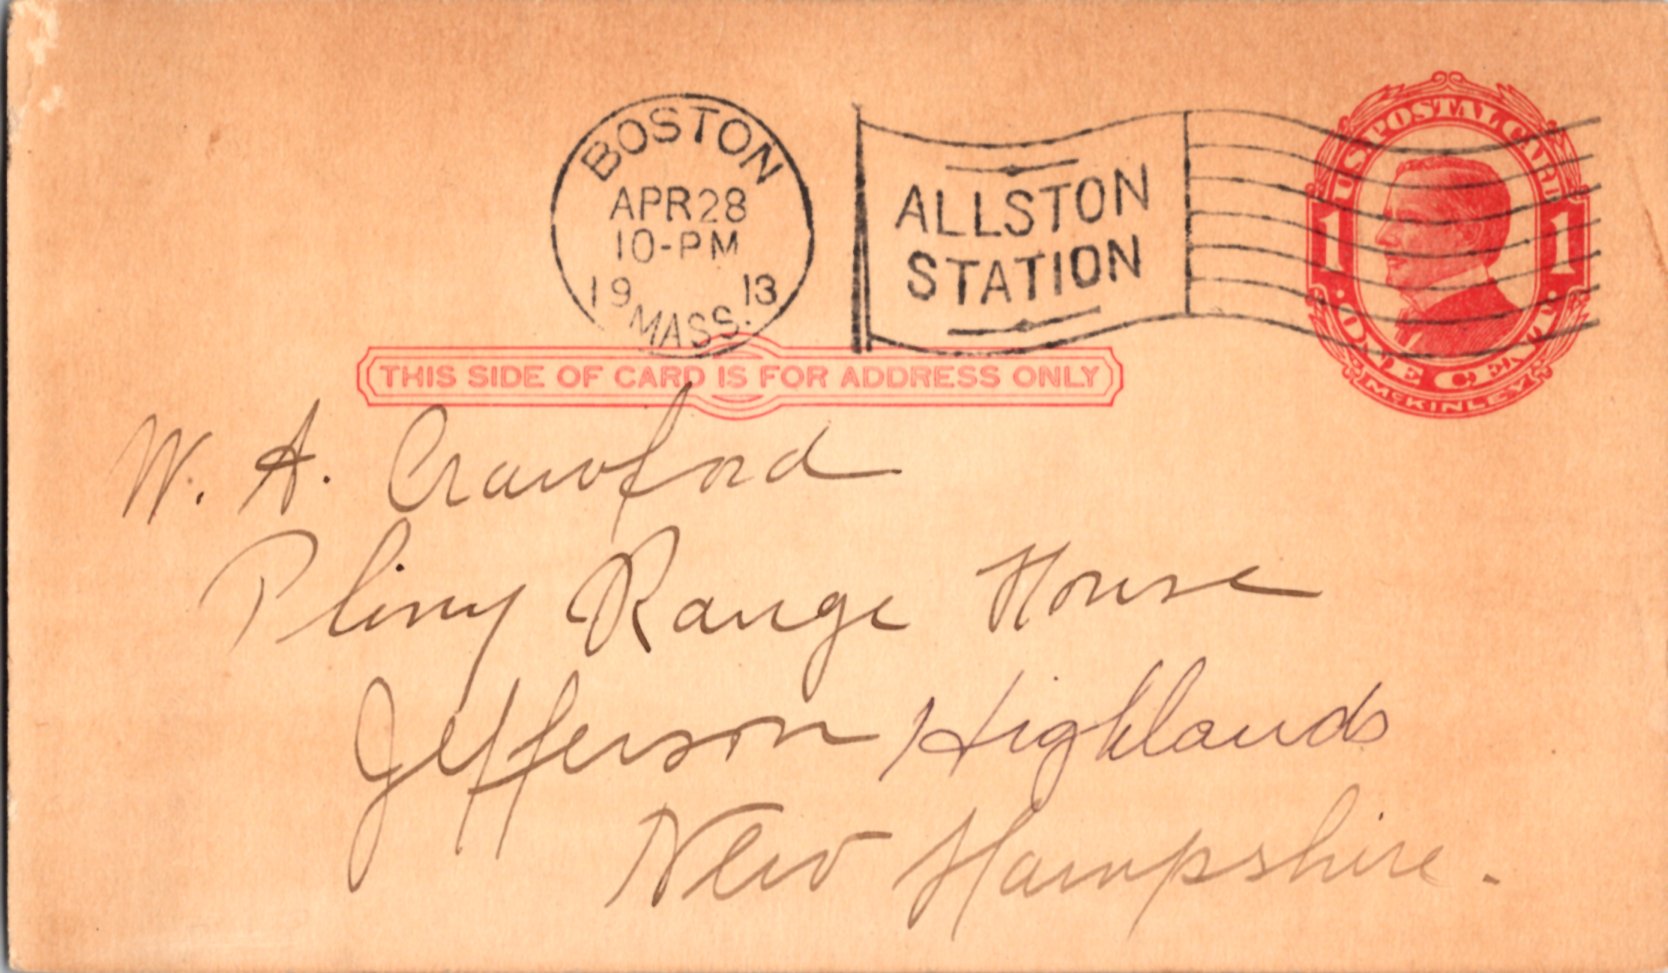 BOSTON
APR 28
10-PM
19 13
MASS.
ALLSTON
STATION
U.S. POSTAL CARD
1 1
· ONE CENT ·
McKINLEY
THIS SIDE OF CARD IS FOR ADDRESS ONLY
W. A. Crawford
Pliny Range House
Jefferson Highlands
New Hampshire.